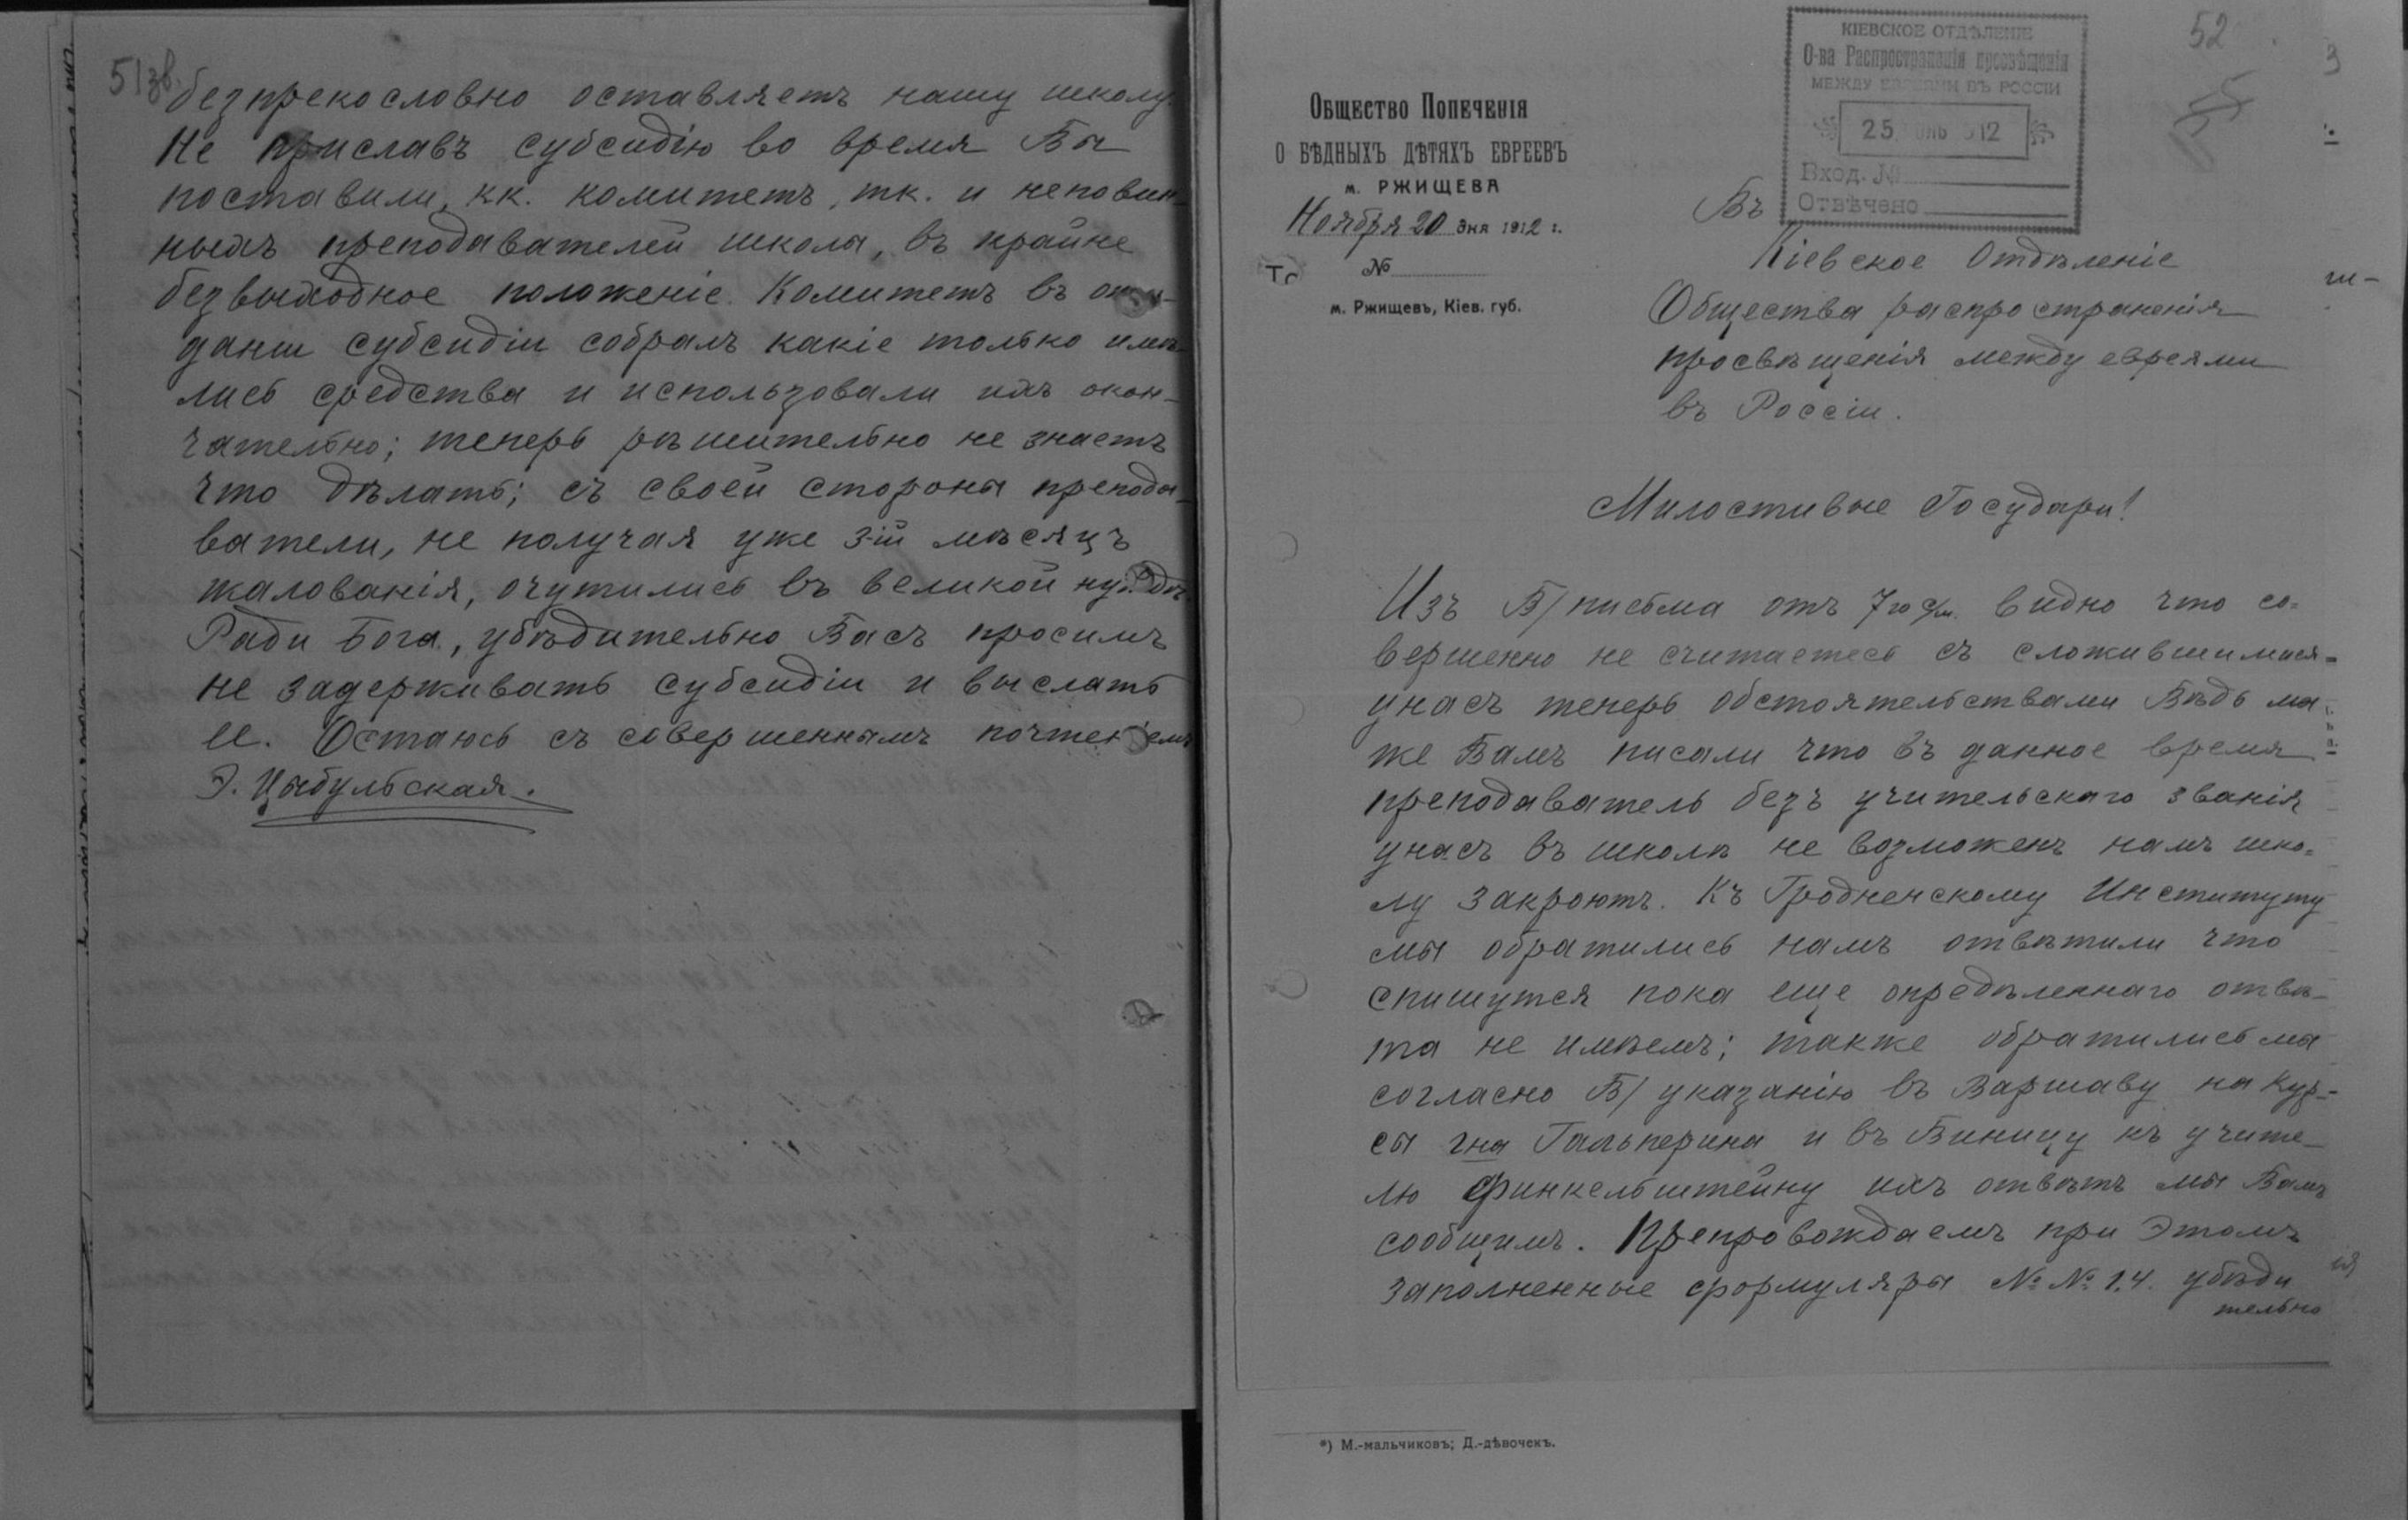 51зв.
безпрекословно оставляетъ нашу школу.
Не приславъ субсидію во время Вы
поставили, кк. комитетъ, тк. и неповин-
ныхъ преподавателей школы, въ крайне
безвыходное положеніе. Комитетъ въ ожи-
даніи субсидіи собралъ какіе только имѣ-
лись средства и использовали ихъ окон-
чательно; теперь рѣшительно не знаетъ
что дѣлать; съ своей стороны препода-
ватели, не получая уже 3-ій мѣсяцъ
жалованія, очутились въ великой нуждѣ.
Ради Бога, убѣдительно Васъ просимъ
не задерживать субсидіи и выслать
ее. Остаюсь съ совершеннымъ почтеніемъ
Э. Цыбульская.
52
КІЕВСКОЕ ОТДѢЛЕНІЕ
О-ва Распространенія просвѣщенія
МЕЖДУ ЕВРЕЯМИ ВЪ РОССІИ
25 912
Вход. №
Отвѣчено
Общество Попеченія
о бѣдныхъ дѣтяхъ евреевъ
м. РЖИЩЕВА
Ноября 20 дня 1912 г.
№
м. Ржищевъ, Кіев. губ.
Въ
Кіевское Отдѣленіе
Общества распространенія
просвѣщенія между евреями
въ Россіи.
Милостивые Государи!
Изъ В/ письма отъ 7го с/м. видно что со-
вершенно не считаетесь съ сложившимися
унасъ теперь обстоятельствами Вѣдь мы
же Вамъ писали что въ данное время
преподаватель безъ учительскаго званія
унасъ въ школѣ не возможенъ намъ шко-
лу закроютъ. Къ Гродненскому Институту
мы обратились намъ отвѣтили что
спишутся пока еще опредѣленнаго отвѣ-
та не имѣемъ; также обратились мы
согласно В/ указанію въ Варшаву на Кур-
сы гна Гальперина и въ Виницу къ учите-
лю Финкельштейну ихъ отвѣтъ мы Вамъ
сообщимъ. Препровождаемъ при Этомъ
заполненные формуляры №№ 1,4. убѣди
тельно
*) М.-мальчиковъ; Д.-дѣвочекъ.